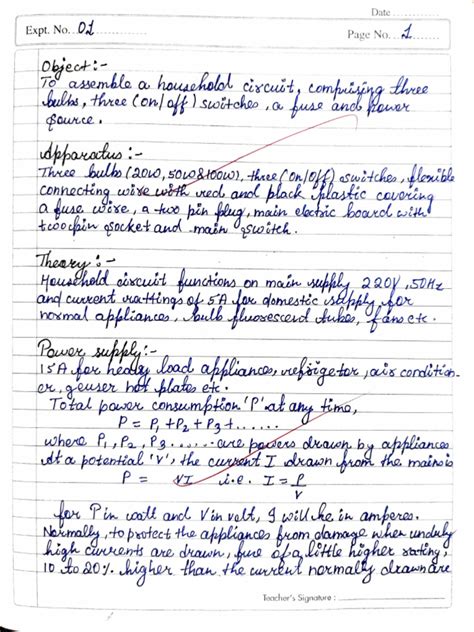 Date
Expt. No. 01
Page No. 1
Object :-
To assemble a household circuit, comprising three
bulbs, three (on/off) switches, a fuse and power
source.
Apparatus :-
Three bulbs (20W, 50W & 100W), three (on/off) switches, flexible
connecting wire with red and black plastic covering
a fuse wire, a two pin plug, main electric board with
two pin socket and main switch.
Theory :-
Household circuit functions on main supply 220V, 50Hz
and current rattings of 5A for domestic supply for
normal appliances, bulb fluorescent tubes, fans etc.
Power supply :-
15A for heavy load appliances, refrigetor, air condition-
er, geuser hot plates etc.
Total power consumption 'P' at any time,
P = P₁ + P₂ + P₃ + ......
where P₁, P₂, P₃ ...... are powers drawn by appliances
At a potential 'V', the current I drawn from the mains is
P = VI i.e. I = P/V
for P in watt and V in volt, I will be in amperes.
Normally, to protect the appliances from damage when unduly
high currents are drawn, fuse of a little higher rating,
10 to 20% higher than the current normally drawn are
Teacher's Signature :